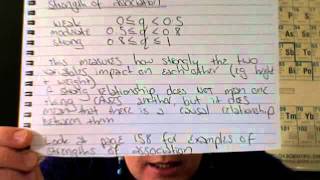 Strength of association
weak 0 ≤ q < 0.5
moderate 0.5 ≤ q < 0.8
strong 0.8 ≤ q ≤ 1
This measures how strongly the two
variables impact on each other (eg height
+ weight)
A strong relationship does not mean one
thing CAUSES another, but it does
mean that there is a causal relationship
between them
Look at page 158 for examples of
strengths of association